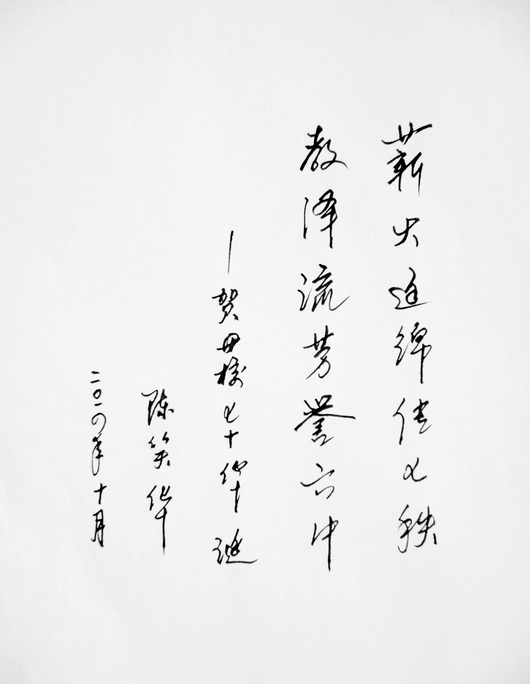 薪火延绵传七秩
教泽流芳誉六中
—贺母校七十华诞
陈笑华
二〇一〇年十月